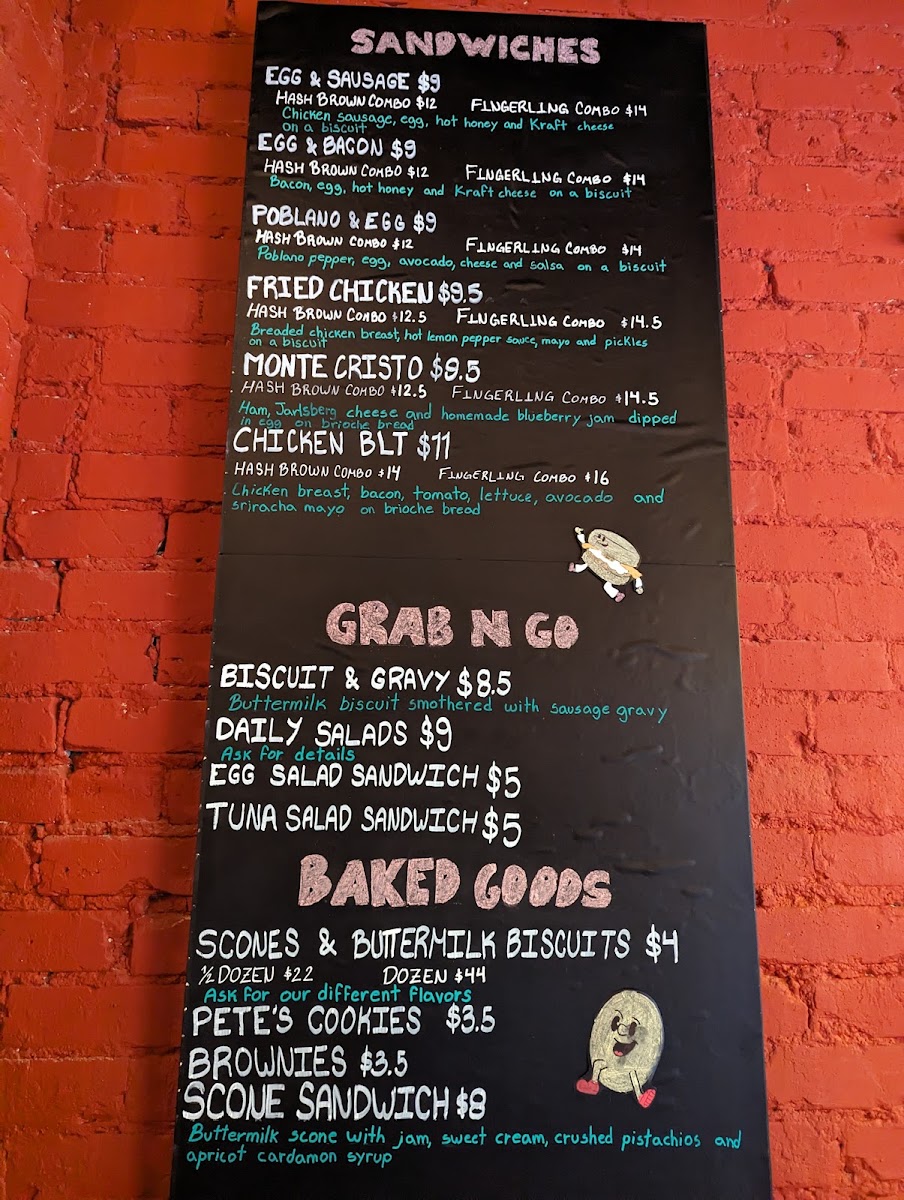 SANDWICHES
EGG & SAUSAGE $9
HASH BROWN COMBO $12 FINGERLING COMBO $14
Chicken sausage, egg, hot honey and Kraft cheese
on a biscuit
EGG & BACON $9
HASH BROWN COMBO $12 FINGERLING COMBO $14
Bacon, egg, hot honey and Kraft cheese on a biscuit
POBLANO & EGG $9
HASH BROWN COMBO $12 FINGERLING COMBO $14
Poblano pepper, egg, avocado, cheese and salsa on a biscuit
FRIED CHICKEN $9.5
HASH BROWN COMBO $12.5 FINGERLING COMBO $14.5
Breaded chicken breast, hot lemon pepper sauce, mayo and pickles
on a biscuit
MONTE CRISTO $9.5
HASH BROWN COMBO $12.5 FINGERLING COMBO $14.5
Ham, Jarlsberg cheese and homemade blueberry jam dipped
in egg on brioche bread
CHICKEN BLT $11
HASH BROWN COMBO $14 FINGERLING COMBO $16
Chicken breast, bacon, tomato, lettuce, avocado and
sriracha mayo on brioche bread
GRAB N GO
BISCUIT & GRAVY $8.5
Buttermilk biscuit smothered with sausage gravy
DAILY SALADS $9
Ask for details
EGG SALAD SANDWICH $5
TUNA SALAD SANDWICH $5
BAKED GOODS
SCONES & BUTTERMILK BISCUITS $4
½ DOZEN $22 DOZEN $44
Ask for our different flavors
PETE'S COOKIES $3.5
BROWNIES $3.5
SCONE SANDWICH $8
Buttermilk scone with jam, sweet cream, crushed pistachios and
apricot cardamon syrup